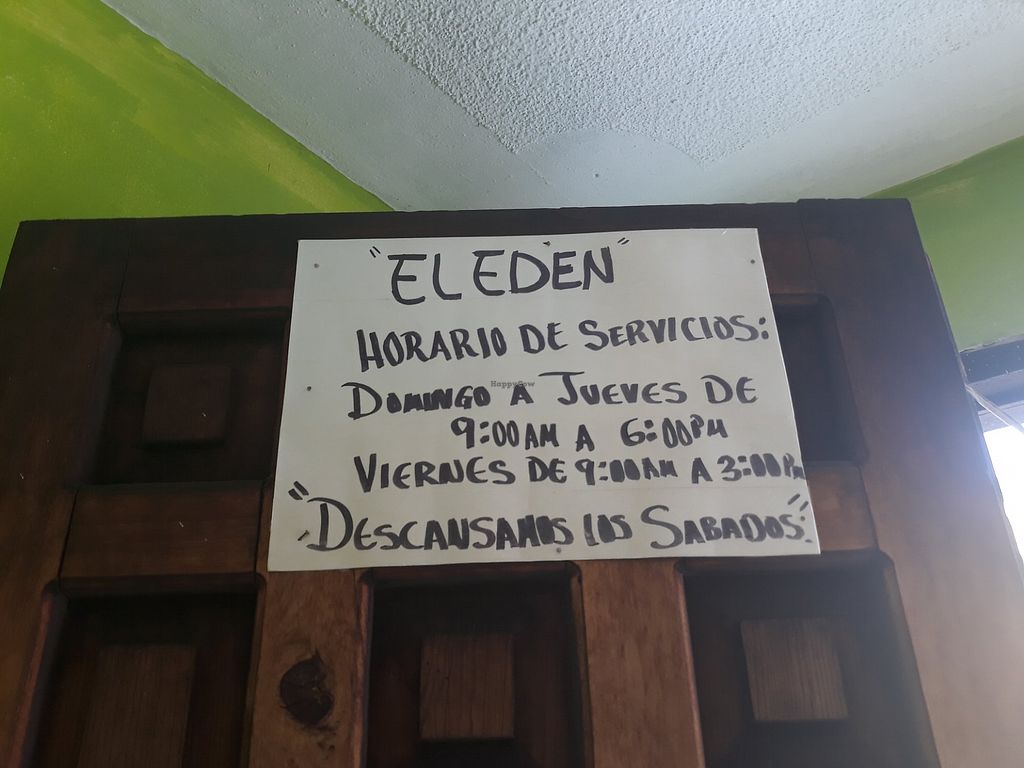 "EL EDEN"
HORARIO DE SERVICIOS:
DOMINGO A JUEVES DE
9:00 AM A 6:00 PM
VIERNES DE 9:00 AM A 3:00 Pm
"DESCANSAMOS LOS SABADOS".
HappyCow